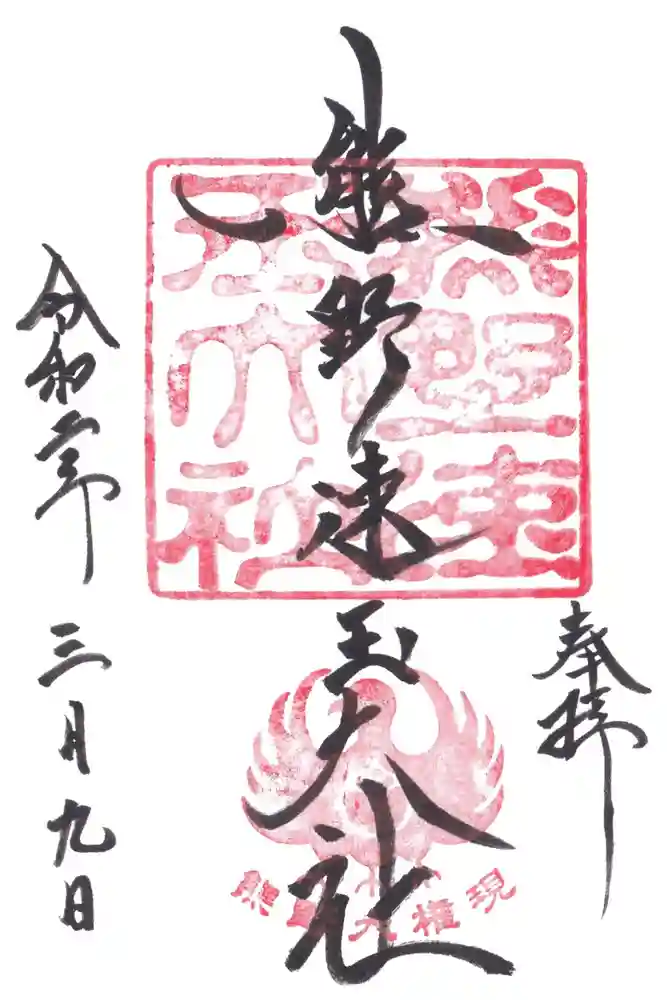 奉拝
熊野速玉大社
令和二年 三月九日
熊野速
玉大社
熊野大権現